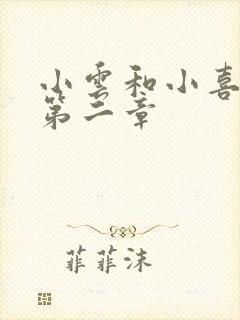 小雲和小喜
第二章
菲菲沫